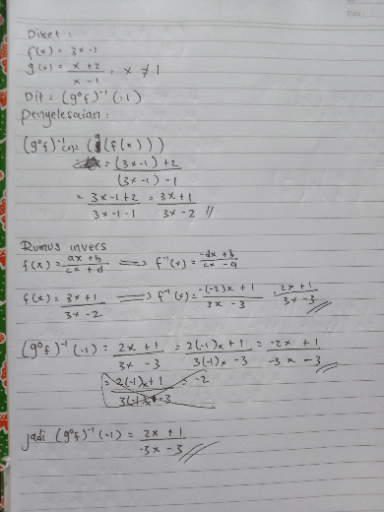 Diket :
f(x) = 3x -1
g(x) = x + 2 / x - 1 , x ≠ 1
Dit = (g°f)⁻¹ (-1)
Penyelesaian :
(g°f)⁻¹(x) = (g (f (x)))
= (3x - 1) + 2 / (3x - 1) - 1
= 3x - 1 + 2 / 3x - 1 - 1 = 3x + 1 / 3x - 2 //
Rumus invers
f(x) = ax + b / cx + d ⟹ f⁻¹(x) = -dx + b / cx - a
f(x) = 3x + 1 / 3x - 2 ⟹ f⁻¹(x) = -(-2)x + 1 / 3x - 3 2x + 1 / 3x - 3 //
(g°f)⁻¹ (-1) = 2x + 1 / 3x - 3 = 2(-1)x + 1 / 3(-1)x - 3 = -2x + 1 / -3x - 3 //
= 2(-1)x + 1 / 3(-1)x - 3 = -2
jadi (g°f)⁻¹ (-1) = 2x + 1 / -3x - 3 //